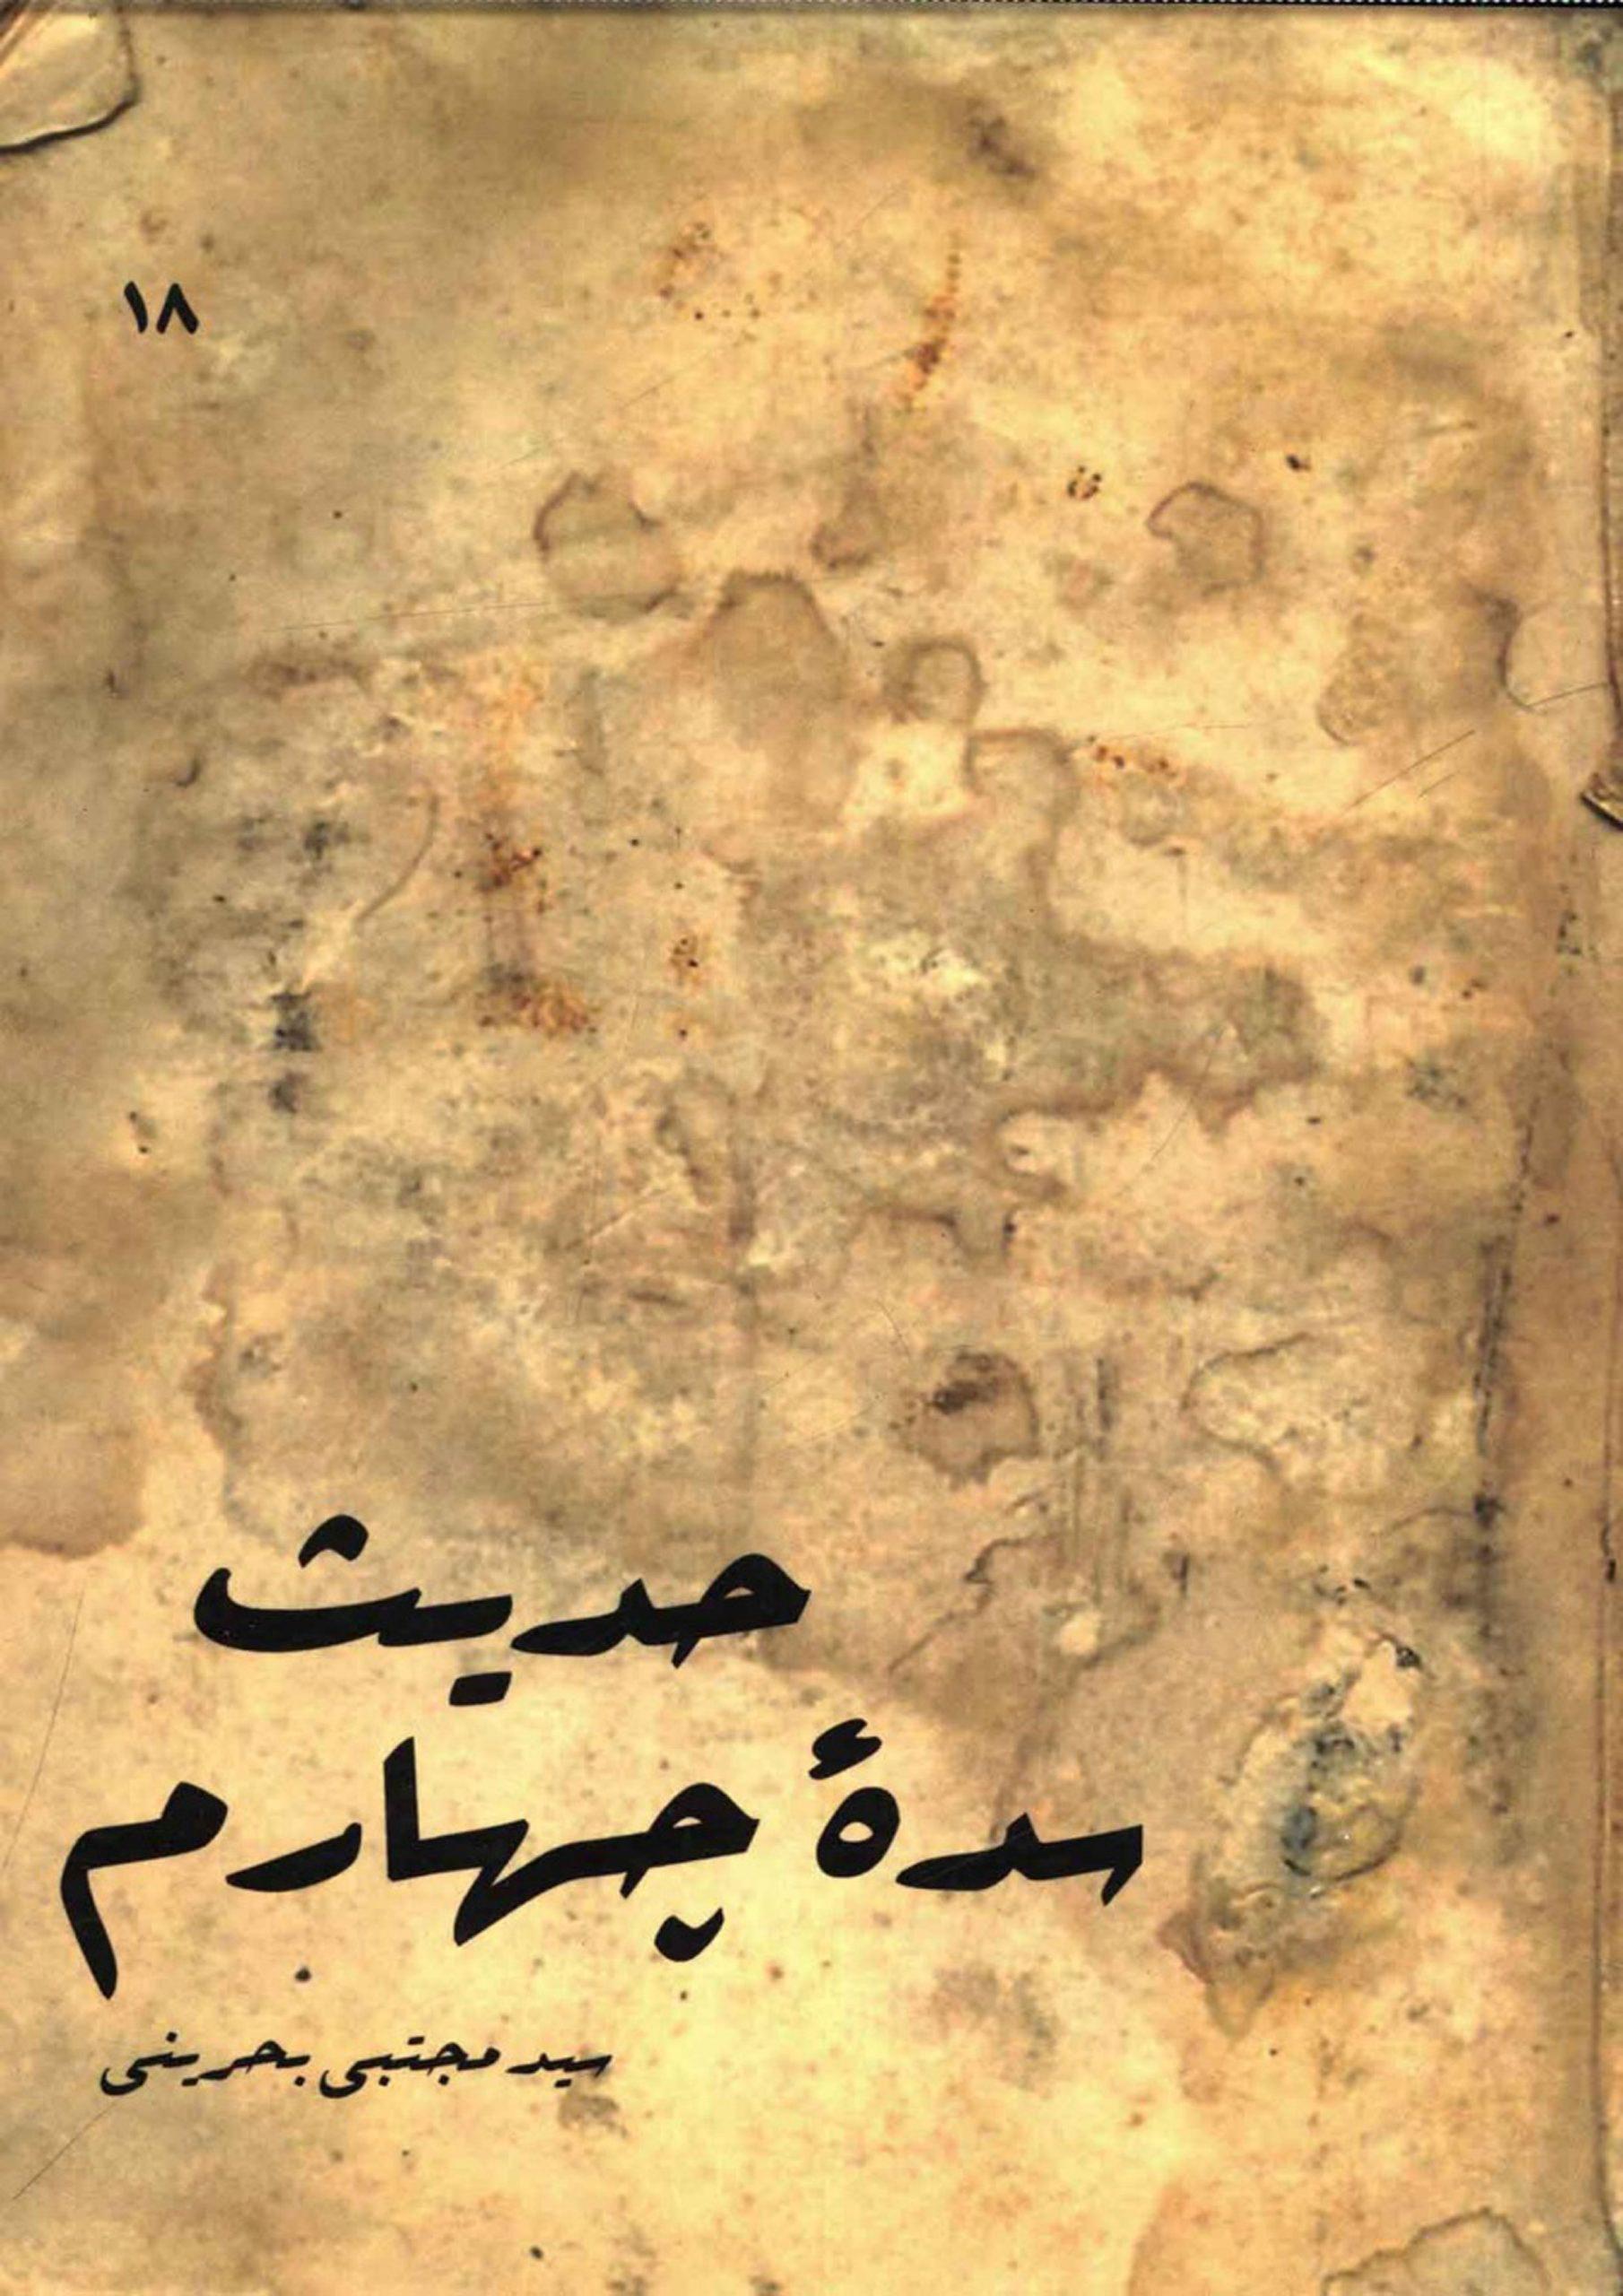 ۱۸
حدیث
سدۀ چهارم
سید مجتبی بحرینی